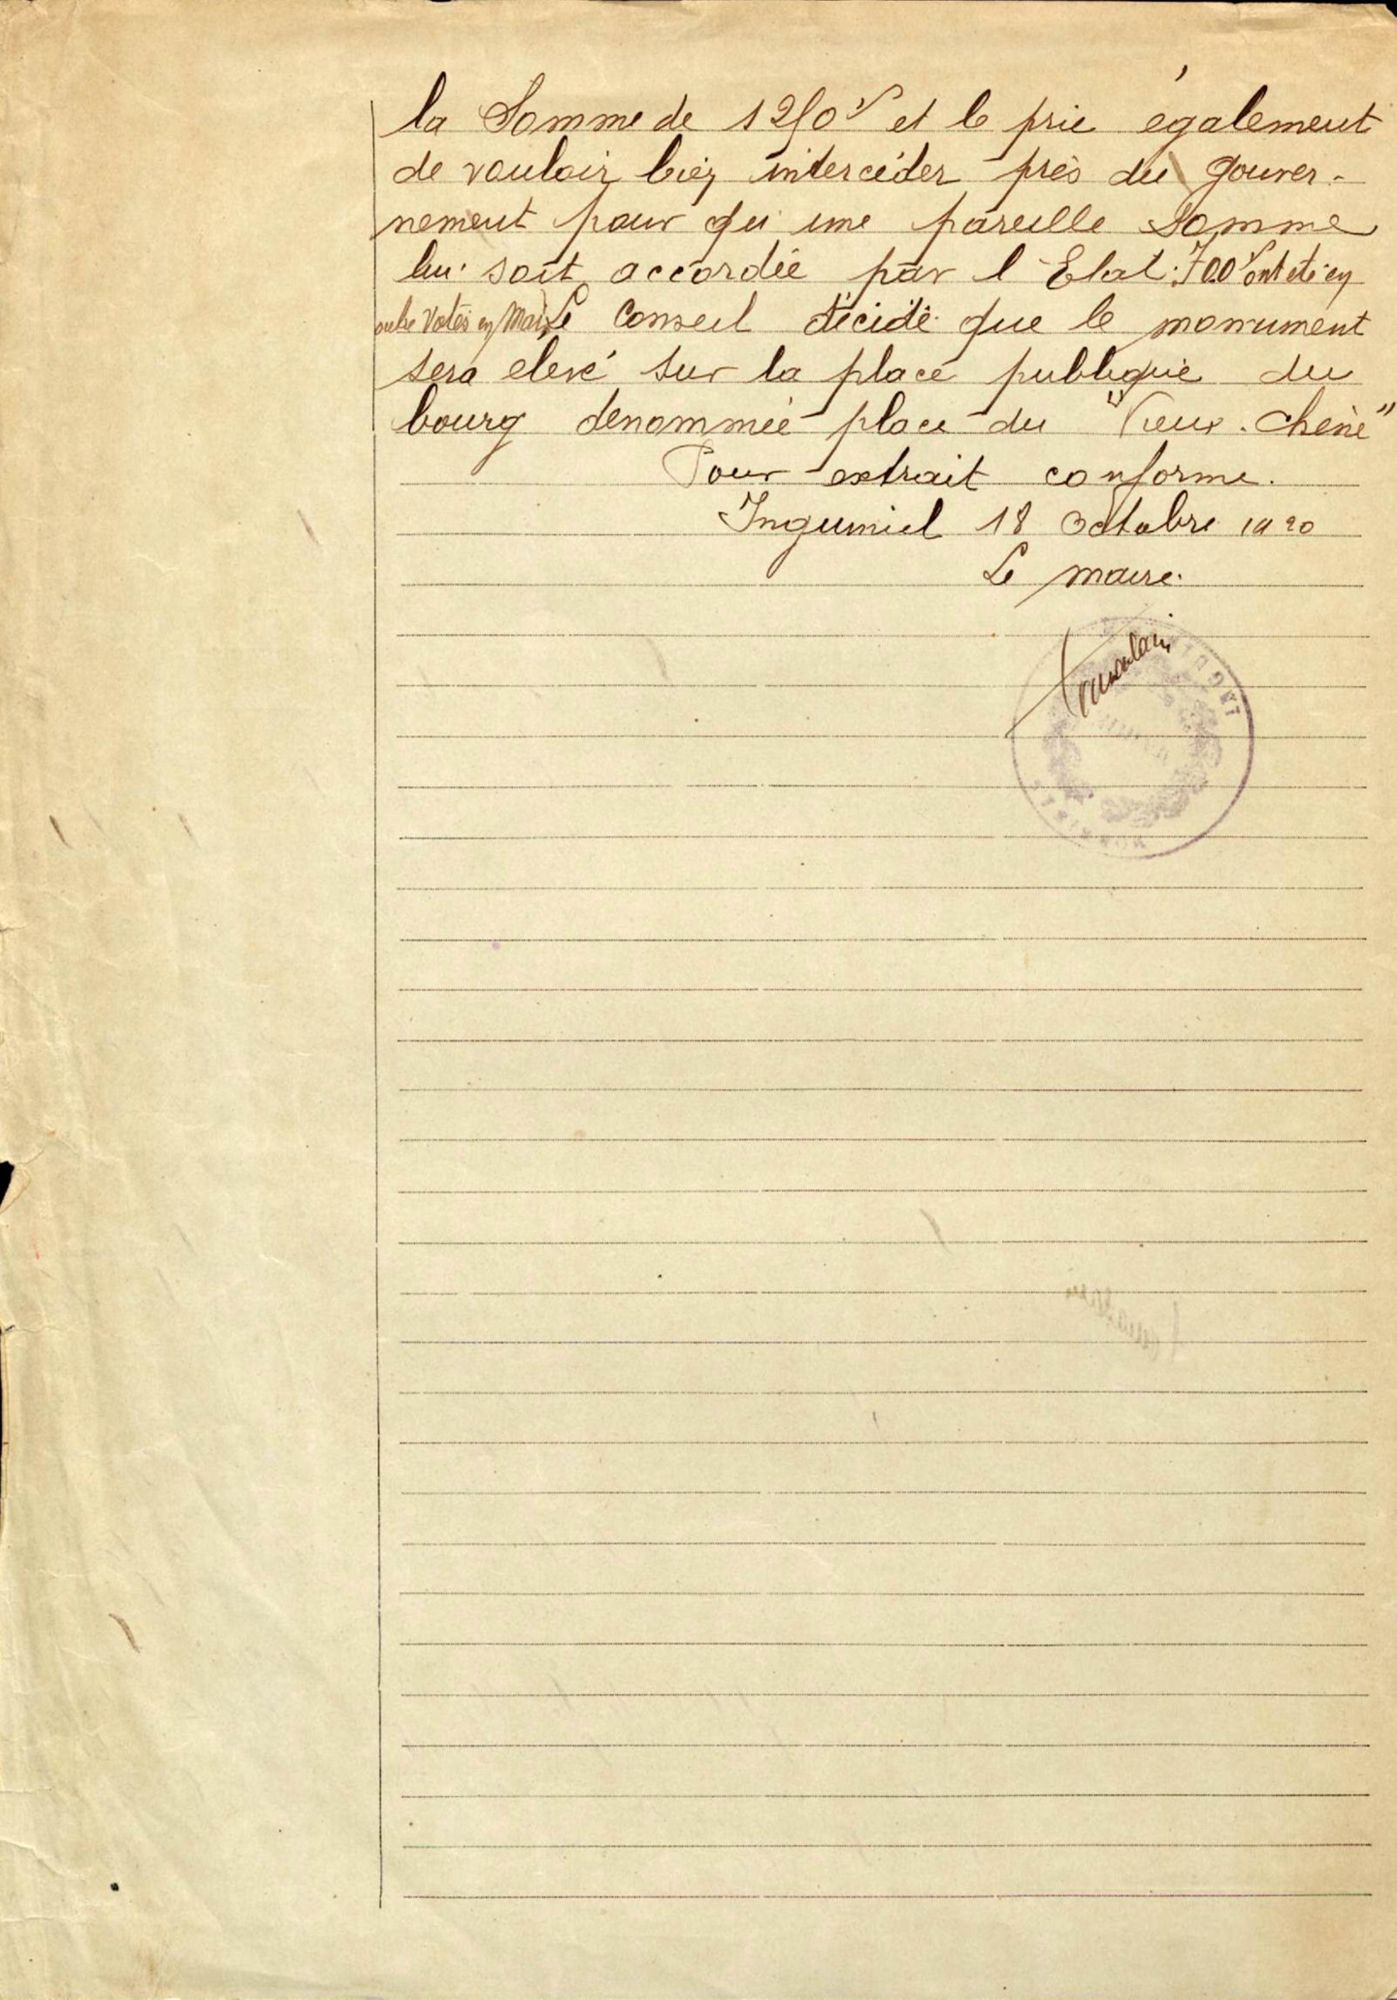 la Somme de 1250f et le prie également
de vouloir bien intercéder près du gouver-
nement pour qu'une pareille somme
lui soit accordée par l'Etat. 700f ont été en
outre votés en Mai. Le Conseil décide que le monument
sera élevé sur la place publique du
bourg dénommée place du "Vieux-Chêne"
Pour extrait conforme.
Inguiniel 18 Octobre 1920
Le maire.
MORBIHAN